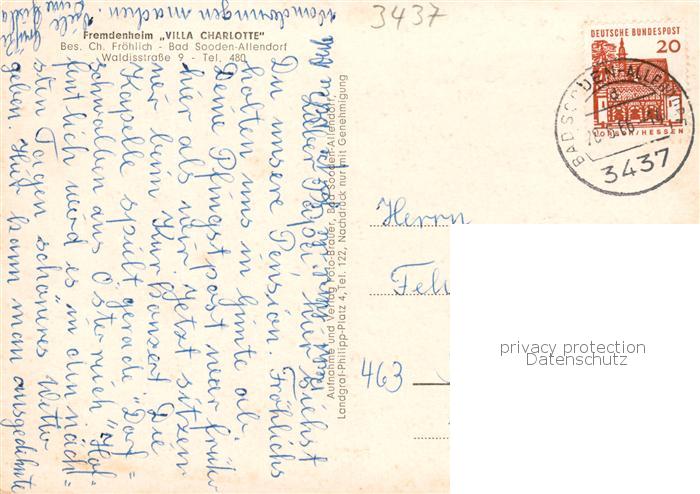 3437
Fremdenheim „VILLA CHARLOTTE"
Bes. Ch. Fröhlich - Bad Sooden-Allendorf
Waldisstraße 9 - Tel. 480
DEUTSCHE BUNDESPOST
20
LORSCH/HESSEN
BAD SOODEN-ALLENDORF
3437
Du unsere Pension. Fröhlichs
halten uns in Günte ab.
Deine Pfingstpost war früher
hier als wir. Jetzt sitzen
wir beim Kurkonzert. Die
Kapelle spielt gerade "Dorf=
schwalben aus Österreich". Hof=
fentlich wird es in den näch=
sten Tagen schöneres Wetter
geben. Hier kann man ausgedehnte
Wanderungen machen.
Viele Grüße
Aufnahme und Verlag Foto-Brauer, Bad Sooden-Allendorf,
Landgraf-Philipp-Platz 4, Tel. 122, Nachdruck nur mit Genehmigung
Herrn
463
privacy protection
Datenschutz